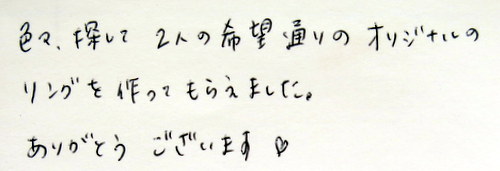 色々、探して 2人の希望通りの オリジナルの
リングを作ってもらえました。
ありがとう ございます♡